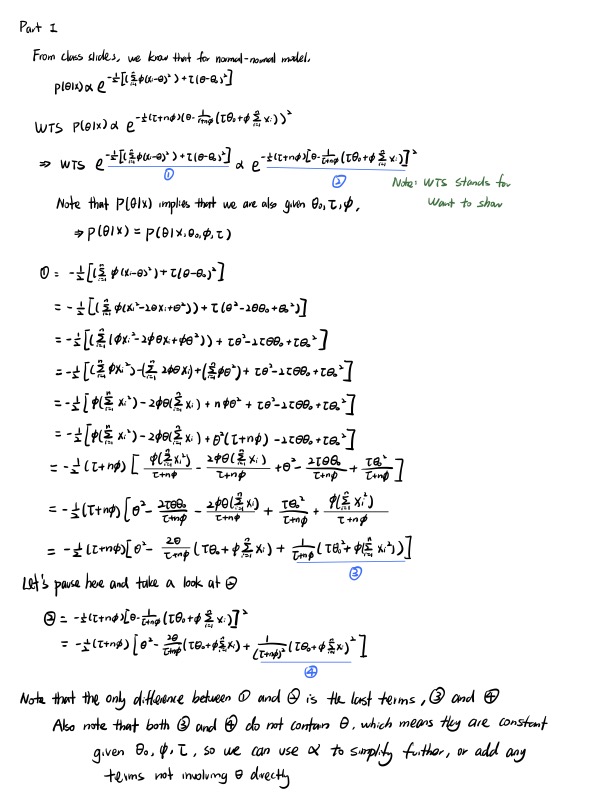 Part 1
From class slides, we know that for normal-normal model,
P(θ|x) ∝ e^{-½[(Σ_{i=1}^n φ(xᵢ-θ)²) + τ(θ-θ₀)²]}
WTS P(θ|x) ∝ e^{-½(τ+nφ)(θ - 1/(τ+nφ) (τθ₀+φ Σ_{i=1}^n xᵢ))²}
⇒ WTS e^{-½[(Σ_{i=1}^n φ(xᵢ-θ)²) + τ(θ-θ₀)²]} ∝ e^{-½(τ+nφ)[θ - 1/(τ+nφ) (τθ₀+φ Σ_{i=1}^n xᵢ)]²}
① ②
Note: WTS stands for
Want to show
Note that P(θ|x) implies that we are also given θ₀, τ, φ,
⇒ P(θ|x) = P(θ|x, θ₀, φ, τ)
① = -½[(Σ_{i=1}^n φ(xᵢ-θ)²) + τ(θ-θ₀)²]
= -½[(Σ_{i=1}^n φ(xᵢ²-2θxᵢ+θ²)) + τ(θ²-2θθ₀+θ₀²)]
= -½[(Σ_{i=1}^n (φxᵢ²-2φθxᵢ+φθ²)) + τθ²-2τθθ₀+τθ₀²]
= -½[(Σ_{i=1}^n φxᵢ²)-(Σ_{i=1}^n 2φθxᵢ)+(Σ_{i=1}^n φθ²) + τθ²-2τθθ₀+τθ₀²]
= -½[φ(Σ_{i=1}^n xᵢ²)-2φθ(Σ_{i=1}^n xᵢ) + nφθ² + τθ²-2τθθ₀+τθ₀²]
= -½[φ(Σ_{i=1}^n xᵢ²)-2φθ(Σ_{i=1}^n xᵢ)+θ²(τ+nφ) -2τθθ₀+τθ₀²]
= -½(τ+nφ)[φ(Σ_{i=1}^n xᵢ²)/(τ+nφ) - 2φθ(Σ_{i=1}^n xᵢ)/(τ+nφ) + θ² - 2τθθ₀/(τ+nφ) + τθ₀²/(τ+nφ)]
= -½(τ+nφ)[θ² - 2τθθ₀/(τ+nφ) - 2φθ(Σ_{i=1}^n xᵢ)/(τ+nφ) + τθ₀²/(τ+nφ) + φ(Σ_{i=1}^n xᵢ²)/(τ+nφ)]
= -½(τ+nφ)[θ² - 2θ/(τ+nφ) (τθ₀+φ Σ_{i=1}^n xᵢ) + 1/(τ+nφ) (τθ₀²+φ(Σ_{i=1}^n xᵢ²))]
③
Let's pause here and take a look at ②
② = -½(τ+nφ)[θ - 1/(τ+nφ) (τθ₀+φ Σ_{i=1}^n xᵢ)]²
= -½(τ+nφ)[θ² - 2θ/(τ+nφ) (τθ₀+φ Σ_{i=1}^n xᵢ) + 1/(τ+nφ)² (τθ₀+φ Σ_{i=1}^n xᵢ)²]
④
Note that the only difference between ① and ② is the last terms, ③ and ④
Also note that both ③ and ④ do not contain θ, which means they are constant
given θ₀, φ, τ, so we can use ∝ to simplify further, or add any
terms not involving θ directly